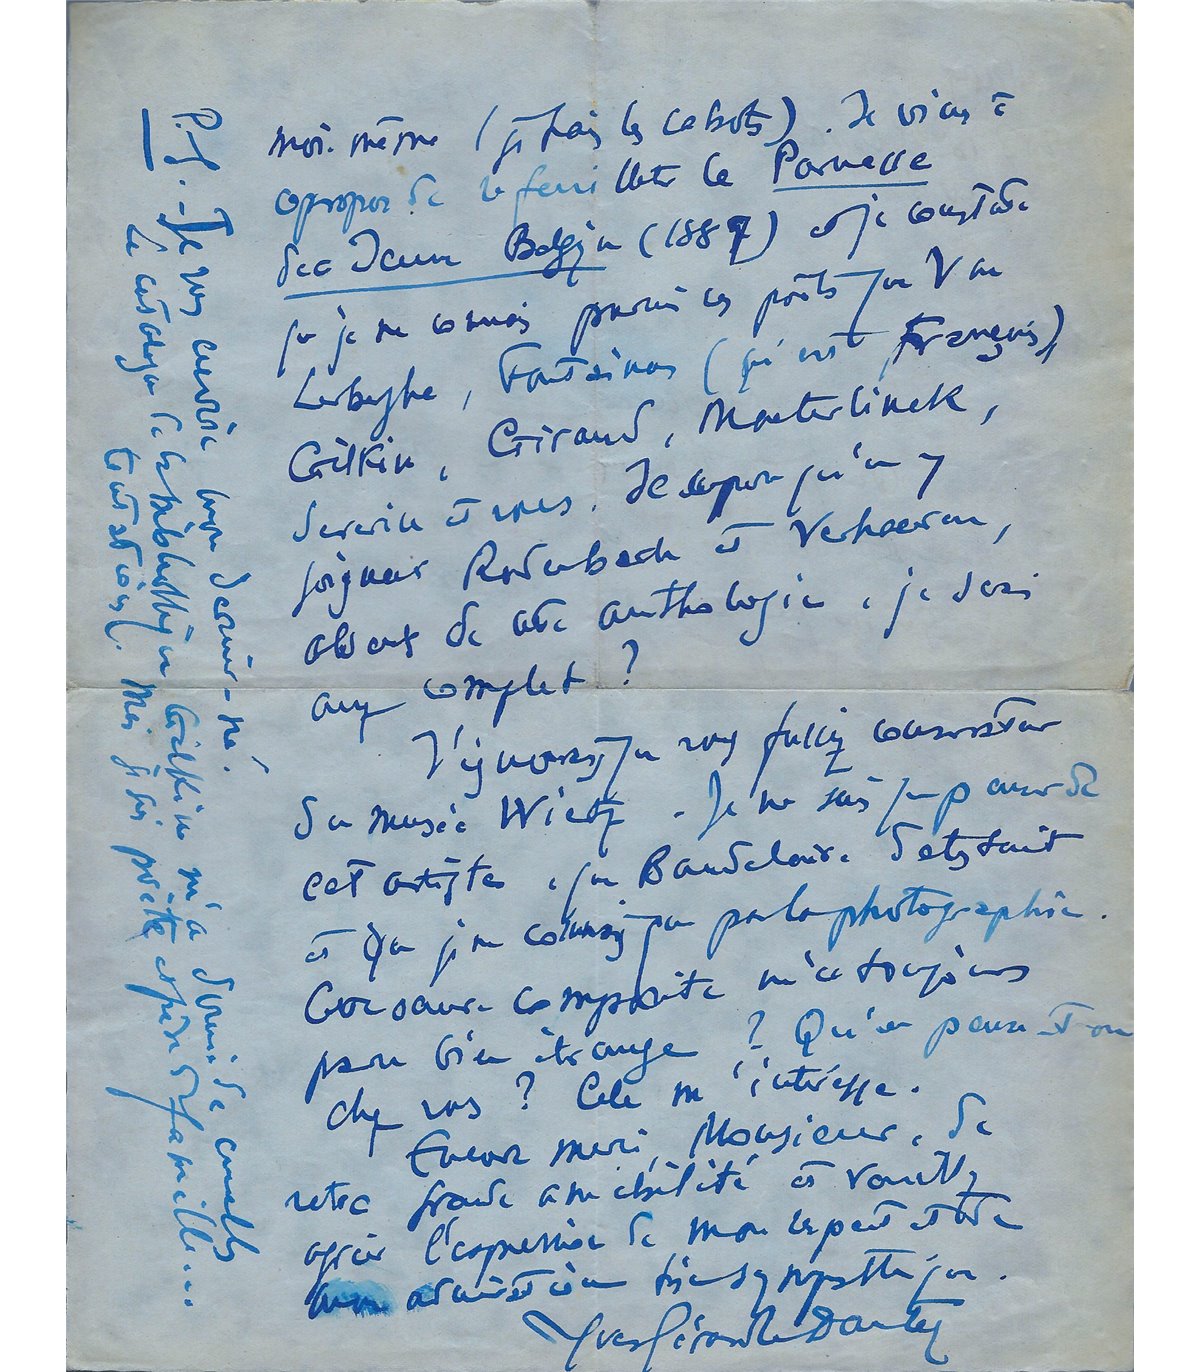 moi-même (je hais les cabots). Je viens à
propos de refeuilleter le Parnasse
de la Jeune Belgique (1887) et je constate
que je ne connais parmi ces poètes que Van
Lerberghe, Fontainas (qui est français),
Gilkin, Giraud, Maeterlinck,
Severin et vous. Je suppose qu'en y
joignant Rodenbach et Verhaeren,
absents de cette anthologie, je serai
au complet ?
J'ignorais que vous fussiez conservateur
du musée Wiertz. Je ne sais que penser de
cet artiste, que Baudelaire détestait
et que je ne connais que par la photographie.
Son œuvre composite m'a toujours
paru bien étrange ? Qu'en pense-t-on
chez vous ? Cela m'intéresse.
Encore merci, Monsieur, de
votre grande amabilité et veuillez
agréer l'expression de mon respect et de
mon admiration très sympathique.
Yves-Gérard Le Dantec
P.S. - Je vous envoie mon dernier-né.
Le catalogue de la bibliothèque Gilkin m'a donné de cruelles
tentations. Mais je suis prêtre et père de famille...